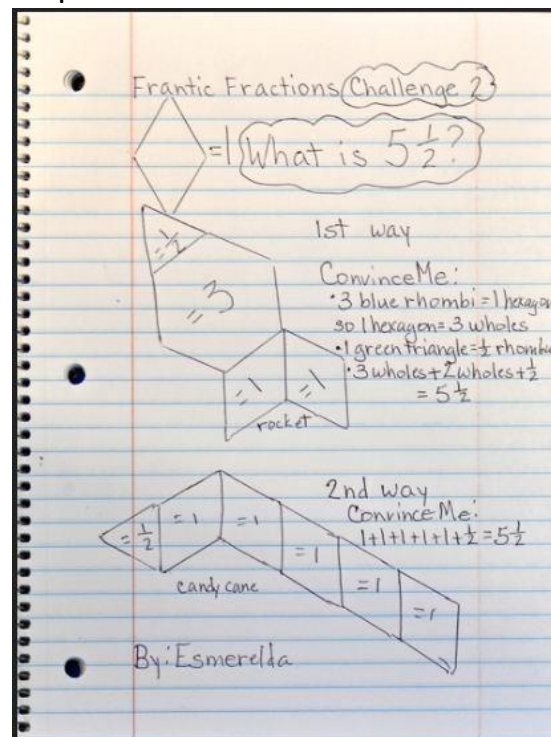 Frantic Fractions Challenge 2
=1 What is 5 1/2?
1st way
= 1/2
Convince Me:
= 3
• 3 blue rhombi = 1 hexagon
so 1 hexagon = 3 wholes
• 1 green triangle = 1/2 rhombu
• 3 wholes + 2 wholes + 1/2
= 5 1/2
= 1 = 1
rocket
2nd way
Convince Me:
1+1+1+1+1+1/2=5 1/2
= 1/2 = 1 = 1
= 1
= 1
= 1
candy cane
By: Esmerelda